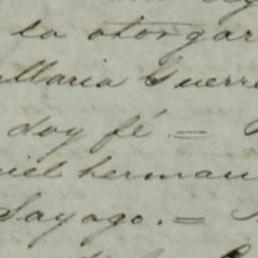 la otorgar
Maria Guerre
doy fé. =
iel herman
Sayago. =